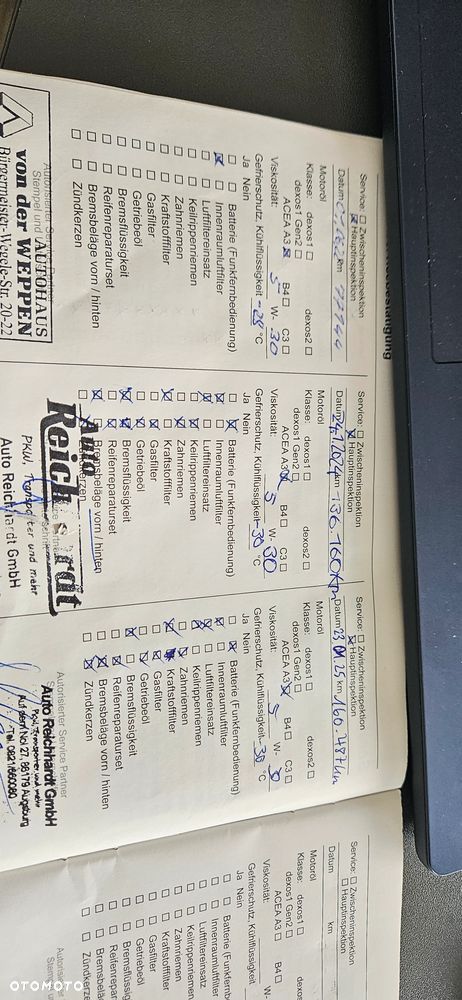 bestätigung
Service: ☐ Zwischeninspektion
☒ Hauptinspektion
Datum km 77744
Motoröl
Klasse: dexos1 ☐ dexos2 ☐
dexos1 Gen2 ☐
ACEA A3 ☒ B4 ☐ C3 ☐
Viskosität: 5 W- 30
Gefrierschutz, Kühlflüssigkeit -28 °C
Ja Nein
☐ ☐ Batterie (Funkfernbedienung)
☒ ☐ Innenraumluftfilter
☐ ☐ Luftfiltereinsatz
☐ ☐ Keilrippenriemen
☐ ☐ Zahnriemen
☐ ☐ Kraftstofffilter
☐ ☐ Gasfilter
☐ ☐ Getriebeöl
☐ ☐ Bremsflüssigkeit
☐ ☐ Reifenreparaturset
☐ ☐ Bremsbeläge vorn / hinten
☐ ☐ Zündkerzen
Autorisierter Service Partner
Stempel und
AUTOHAUS
von der WEPPEN
Bürgermeister-Wegele-Str. 20-22
Service: ☐ Zwischeninspektion
☒ Hauptinspektion
Datum 24.1.2024 km 136.160 km
Motoröl
Klasse: dexos1 ☐ dexos2 ☐
dexos1 Gen2 ☐
ACEA A3 ☒ B4 ☐ C3 ☐
Viskosität: 5 W- 30
Gefrierschutz, Kühlflüssigkeit -30 °C
Ja Nein
☐ ☒ Batterie (Funkfernbedienung)
☒ ☐ Innenraumluftfilter
☒ ☐ Luftfiltereinsatz
☐ ☒ Keilrippenriemen
☐ ☒ Zahnriemen
☒ ☐ Kraftstofffilter
☐ ☒ Gasfilter
☐ ☒ Getriebeöl
☒ ☐ Bremsflüssigkeit
☐ ☒ Reifenreparaturset
☐ ☒ Bremsbeläge vorn / hinten
☐ ☒ Zündkerzen
Auto
Reichardt
PKW, Transporter und mehr
Auto Reichardt GmbH
Service: ☐ Zwischeninspektion
☒ Hauptinspektion
Datum 23.01.25 km 160.487 km
Motoröl
Klasse: dexos1 ☐ dexos2 ☐
dexos1 Gen2 ☐
ACEA A3 ☒ B4 ☐ C3 ☐
Viskosität: 5 W- 30
Gefrierschutz, Kühlflüssigkeit -30 °C
Ja Nein
☐ ☒ Batterie (Funkfernbedienung)
☒ ☐ Innenraumluftfilter
☐ ☐ Luftfiltereinsatz
☒ Keilrippenriemen
☐ ☒ Zahnriemen
☒ Kraftstofffilter
☐ ☒ Gasfilter
☐ ☒ Getriebeöl
☒ ☐ Bremsflüssigkeit
☐ ☒ Reifenreparaturset
☐ ☒ Bremsbeläge vorn / hinten
☐ ☒ Zündkerzen
Autorisierter Service Partner
Auto Reichardt GmbH
Pkw, Transporter und mehr
Auf dem Nol 27, 86179 Augsburg
Tel. 0821/665080
Service: ☐ Zwischeninspektion
☐ Hauptinspektion
Datum km
Motoröl
Klasse: dexos1 ☐
dexos1 Gen2 ☐
ACEA A3 ☐ B4 ☐
Viskosität: W-
Gefrierschutz, Kühlflüssigkeit
Ja Nein
☐ ☐ Batterie (Funkfernb
☐ ☐ Innenraumluftfilter
☐ ☐ Luftfiltereinsatz
☐ ☐ Keilrippenriemen
☐ ☐ Zahnriemen
☐ ☐ Kraftstofffilter
☐ ☐ Gasfilter
☐ ☐ Getriebeöl
☐ ☐ Bremsflüssig
☐ ☐ Reifenrepara
☐ ☐ Bremsbeläge
☐ ☐ Zündkerzen
Autorisierter
Stempel u
OTOMOTO
OTOMOTO